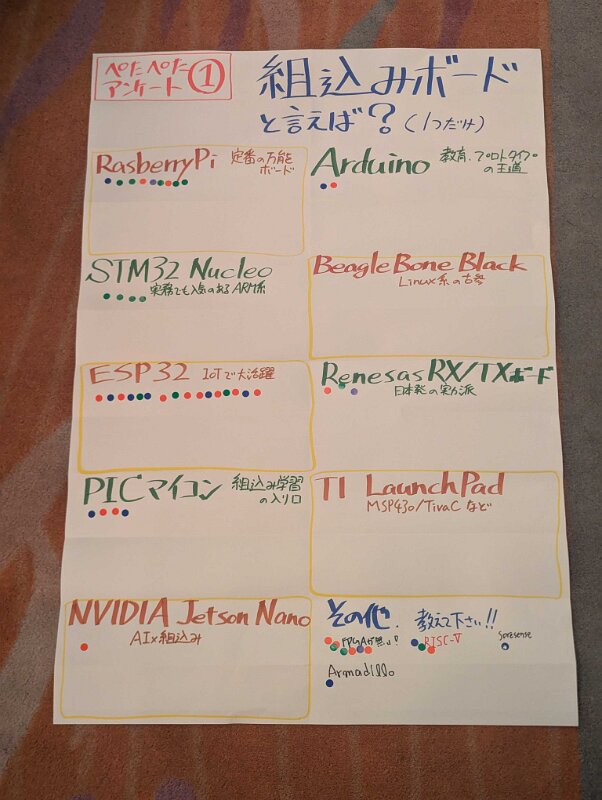 ぺたぺた
アンケート①
組込みボード
と言えば？(1つだけ)
RasberryPi 定番の万能
ボード
Arduino 教育、プロトタイプ
の王道
STM32 Nucleo
実務でも人気のあるARM系
BeagleBoneBlack
Linux系の古参
ESP32 IoTで大活躍
Renesas RX/TXボード
日本発の実力派
PICマイコン 組込み学習
の入り口
TI LaunchPad
MSP430/TivaC など
NVIDIA Jetson Nano
AI×組込み
その他、教えて下さい!!
FPGAが無い!
RISC-V
Spresense
Armadillo